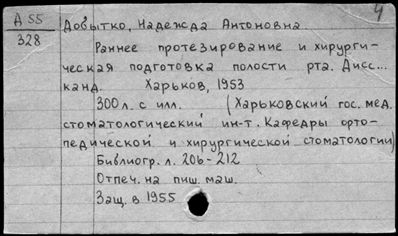 Д 55
328
4
Довытко, Надежда Антоновна
Раннее протезирование и хирурги-
ческая подготовка полости рта. Дисс...
канд. Харьков, 1953
300 л. с илл. (Харьковский гос. мед.
стоматологический ин-т. Кафедры орто-
педической и хирургической стоматологии)
Библиогр. л. 206-212
Отпеч. на пиш. маш.
Защ. в 1955